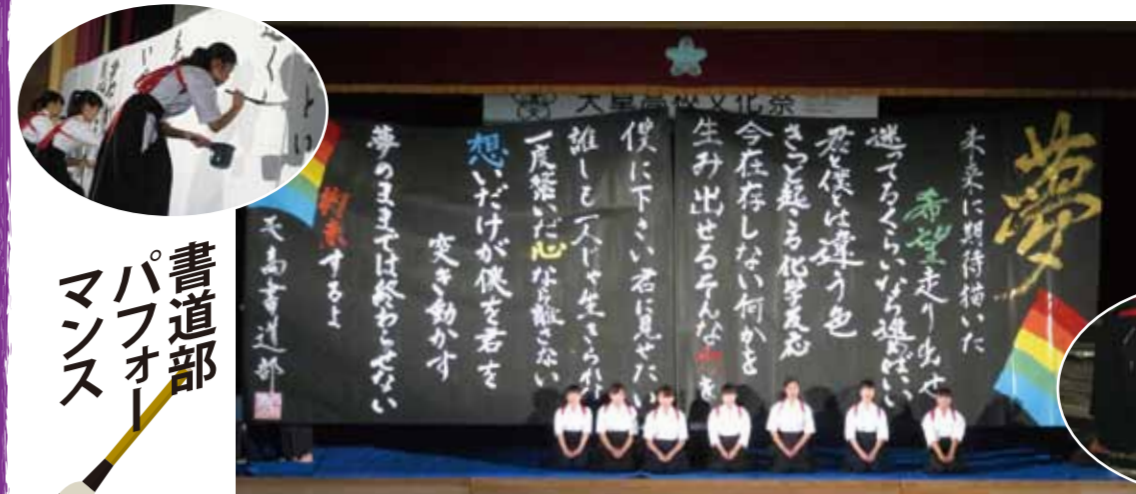 書道部
パフォー
マンス
夢
未来に期待描いた
希望走り出せ
迷ってるくらいなら進めばいい
君と僕とは違う色
きっと起こる化学反応
今在存しない何かを
生み出せるそんな
を
僕に下さい君に見せたい
誰しも一人じゃ生きられ
一度繋いだ心なら離さない
想いだけが僕を君を
突き動かす
夢のままでは終わらせない
約束するよ
天高書道部